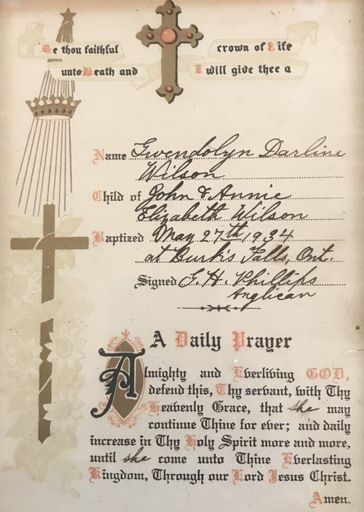 Be thou faithful crown of Life
unto Death and I will give thee a
Name Gwendolyn Darline
Wilson
Child of John & Annie
Elizabeth Wilson
Baptized May 27th, 1934
at Burk's Falls, Ont.
Signed G. H. Phillips
Anglican
A Daily Prayer
Almighty and Everliving GOD,
defend this, Thy servant, with Thy
Heavenly Grace, that she may
continue Thine for ever; and daily
increase in Thy Holy Spirit more and more,
until she come unto Thine Everlasting
Kingdom, Through our Lord Jesus Christ.
Amen.